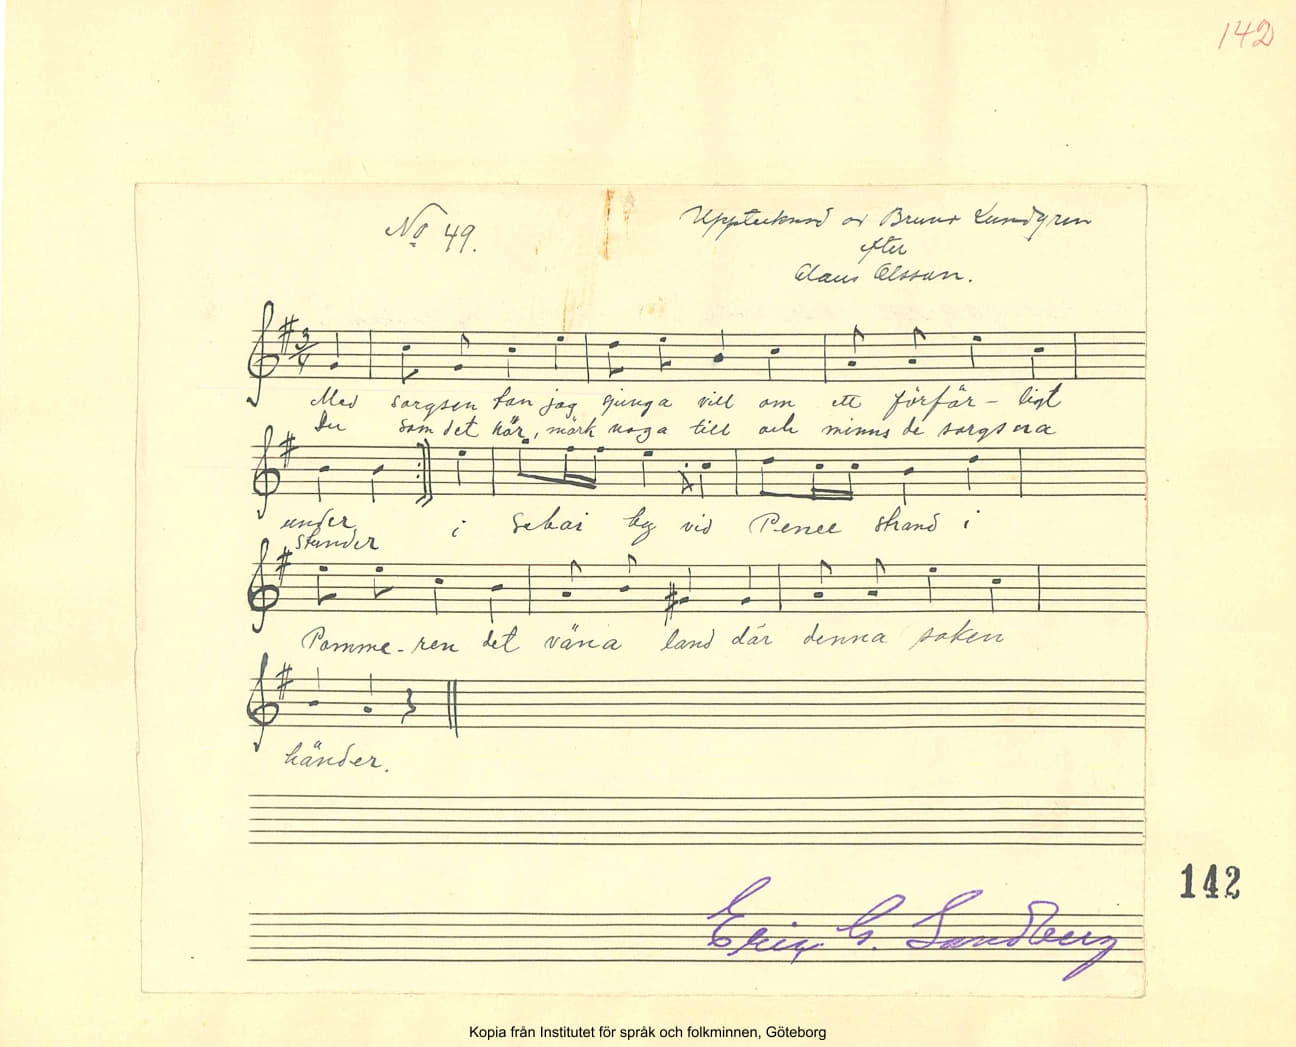 142
No 49.
Upptecknad av Bruno Lundgren
efter
Claus Olsson.
3/4
Med sorgsen ton jag sjunga vill om ett förfär - ligt
Du som det hör, märk noga till och minns de sorgsna
under i by vid Penee strand i
stunder
Pomme - ren det väna land där denna saken
händer.
142
Eric G. Sandberg
Kopia från Institutet för språk och folkminnen, Göteborg